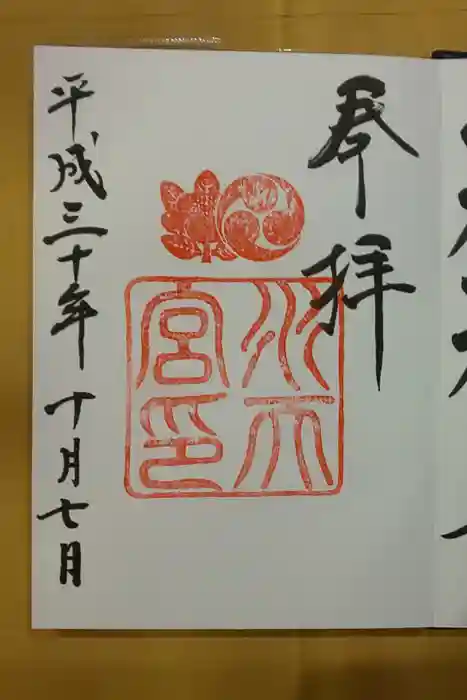 奉拝
水天
宮印
平成三十年十月七月